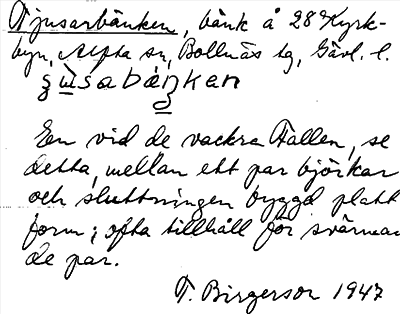 Tjusarbänken, bänk å 28² Kyrk-
byn, Alfta sn, Bollnäs tg, Gävl. l.
ʒu̲sabäŋken
En vid de vackra Tallen, se
detta, mellan ett par björkar
och sluttningen byggd platt
form; ofta tillhåll för svärman
de par.
T. Birgerson 1947